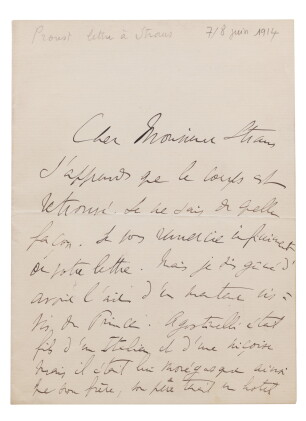 Proust lettre à Straus
7/8 juin 1914
Cher Monsieur Straus
J'apprends que le corps est
retrouvé. Je ne sais de quelle
façon. Je vous remercie infiniment
de votre lettre. Mais je suis gêné d'
avoir l'air d'un menteur vis à
vis du Prince. Agostinelli était
fils d'un Italien et d'une niçoise
mais il était lui monégasque ainsi
que son frère, son père tenait un hôtel